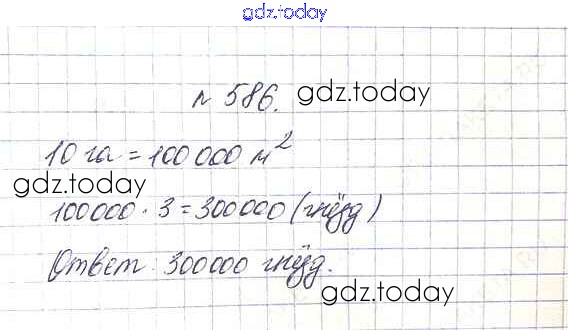 gdz.today
№ 586. gdz.today
10 га = 100 000 м²
gdz.today
100000 · 3 = 300000 (гнёзд)
Ответ: 300000 гнёзд.
gdz.today